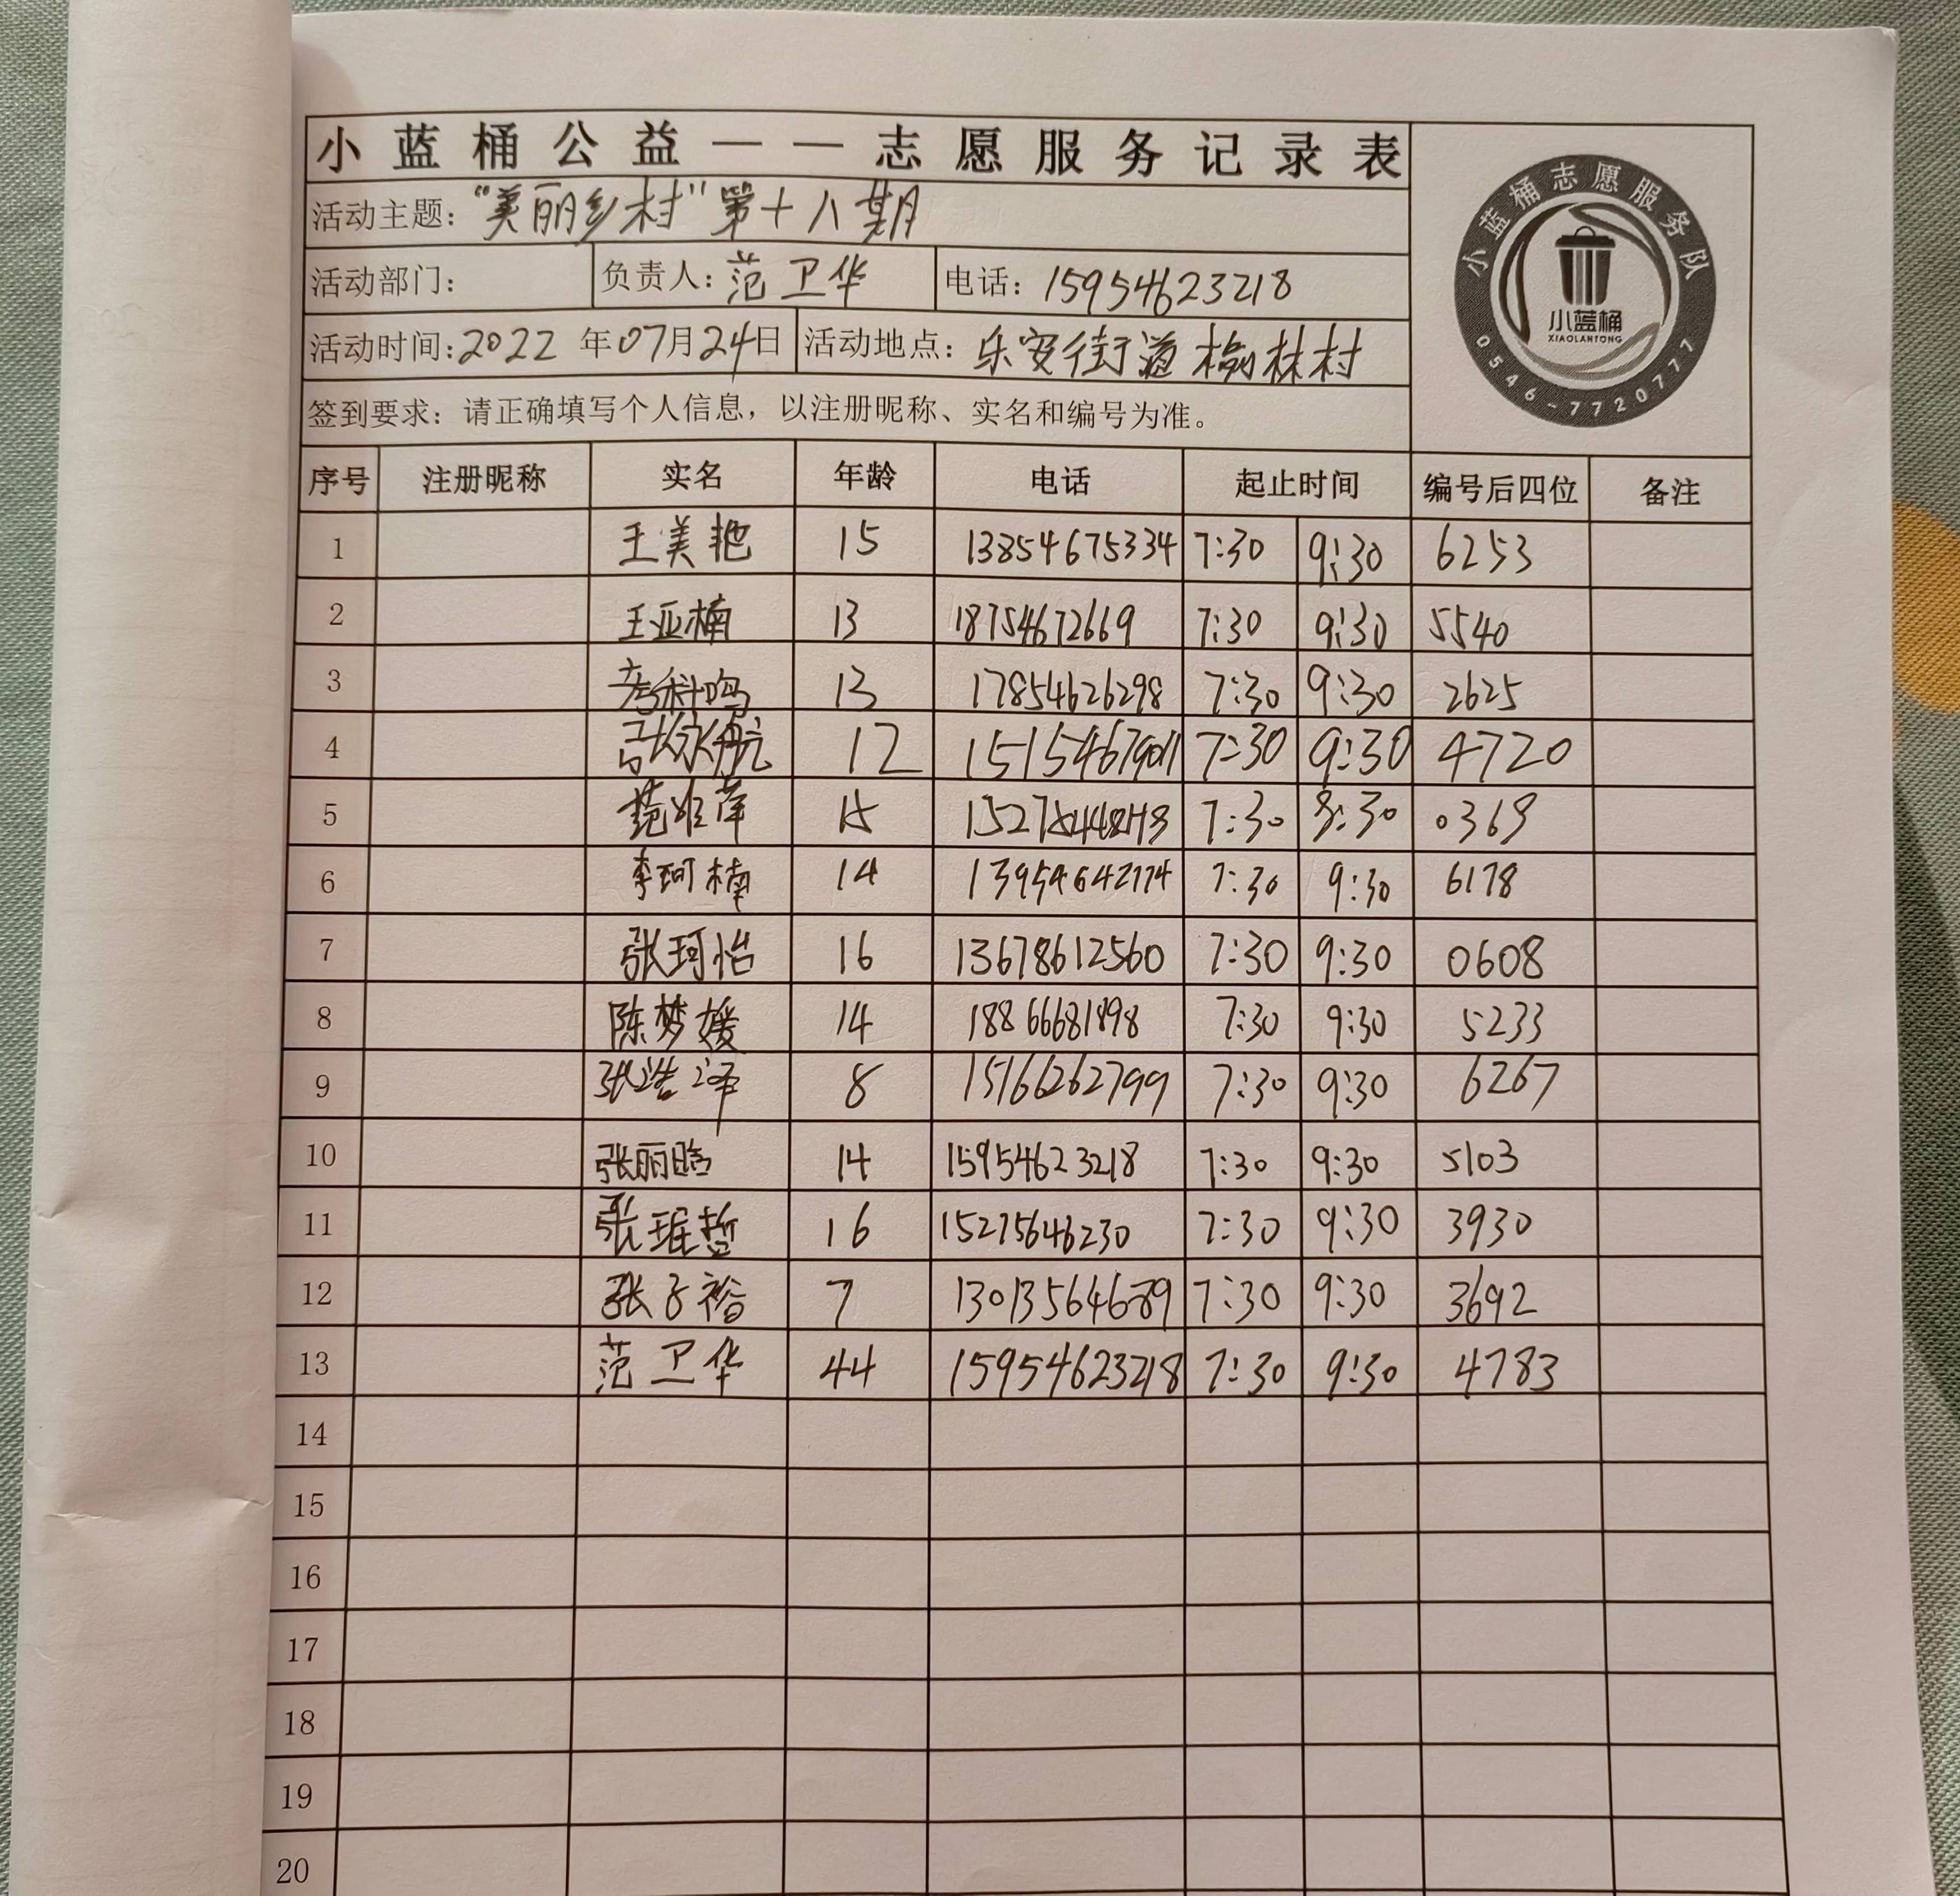 小蓝桶公益——志愿服务记录表
活动主题："美丽乡村"第十八期
活动部门： 负责人：范卫华 电话：15954623218
活动时间：2022年07月24日 活动地点：乐安街道榆林村
签到要求：请正确填写个人信息，以注册昵称、实名和编号为准。
小蓝桶志愿服务队
小蓝桶
XIAOLANTONG
0546-7720777
序号 注册昵称 实名 年龄 电话 起止时间 编号后四位 备注
1 王美艳 15 13854675334 7:30 9:30 6253
2 王亚楠 13 18754672669 7:30 9:30 5540
3 13 17854626298 7:30 9:30 2625
4 张永航 12 7:30 9:30 4720
5 15 7:30 0369
6 李珂楠 14 13954642174 7:30 9:30 6178
7 张珂怡 16 13678612560 7:30 9:30 0608
8 陈梦媛 14 18866681898 7:30 9:30 5233
9 张浩泽 8 15166262799 7:30 9:30 6267
10 张丽晗 14 15954623218 7:30 9:30 5103
11 张珉哲 16 15275646230 7:30 9:30 3930
12 张子裕 7 7:30 9:30 3692
13 范卫华 44 15954623218 7:30 9:30 4783
14
15
16
17
18
19
20